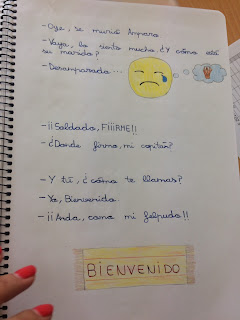 - Oye, se murió Amparo.
- Vaya, lo siento mucho ¿Y cómo está
su marido?
- Desamparado...
- ¡¡Soldado, FIIIRME!!
- ¿Dónde firmo, mi capitán?
- Y tú, ¿cómo te llamas?
- Yo, Bienvenido.
- ¡¡Anda, como mi felpudo!!
BIENVENIDO